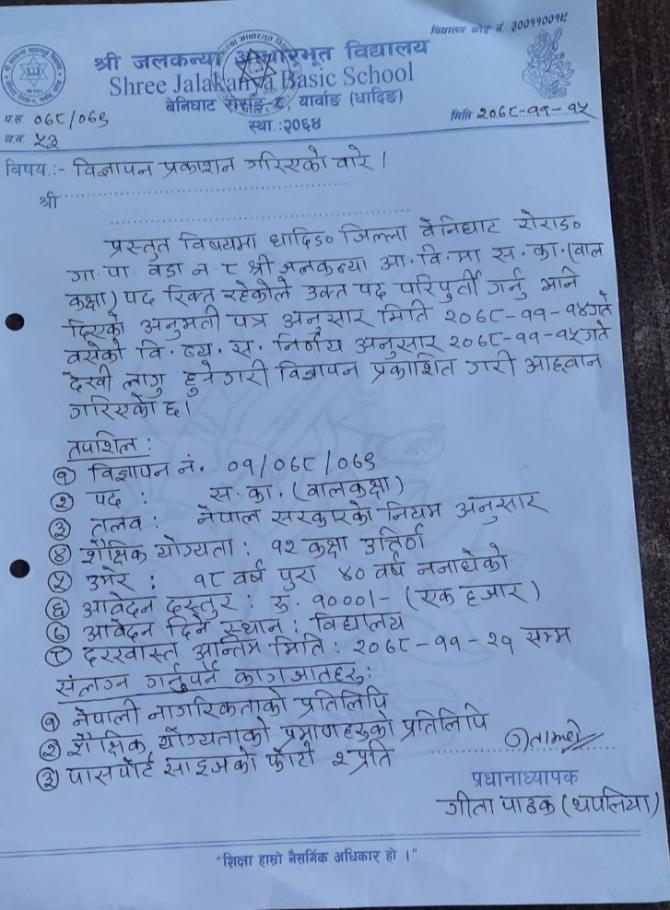 विद्यालय कोड नं. ३००११००१५
श्री जलकन्या आधारभूत विद्यालय
Shree Jalakanya Basic School
बेनिघाट रोराङ्ग ८, यार्वाङ (धादिङ)
स्था.:२०६४
प.स. ०६८/०६९
च.न. ५३
मिति २०६८-११-१५
विषय:- विज्ञापन प्रकाशन गरिएको बारे ।
श्री
प्रस्तुत विषयमा धादिङ जिल्ला बेनिघाट रोराङ
गा.पा. वडा न ८ श्री जलकन्या आ.वि.मा स.का.(वाल
कक्षा) पद रिक्त रहेकोले उक्त पद परिपुर्ती गर्नु भनि
दिएको अनुमती पत्र अनुसार मिति २०६८-११-१४गते
वसेको वि.व्य.स. निर्णय अनुसार २०६८-११-१५गते
देखी लागु हुनेगरी विज्ञापन प्रकाशित गरी आह्वान
गरिएको छ।
तपशिल:
१ विज्ञापन नं. ०१/०६८/०६९
२ पद : स.का.(वालकक्षा)
३ तलव : नेपाल सरकारको नियम अनुसार
४ शैक्षिक योग्यता : १२ कक्षा उत्तिर्ण
५ उमेर : १८ वर्ष पुरा ४० वर्ष ननाघेको
६ आवेदन दस्तुर : रु. १०००।- (एक हजार)
७ आवेदन दिने स्थान : विद्यालय
८ दरखास्त अन्तिम मिति : २०६८-११-२१ सम्म
संलग्न गर्नुपर्ने कागजातहरु:
१ नेपाली नागरिकताको प्रतिलिपि
२ शैक्षिक योग्यताको प्रमाणहरुको प्रतिलिपि
३ पासपोर्ट साइजको फोटो २ प्रति
प्रधानाध्यापक
गीता पाठक (थपलिया)
"शिक्षा हाम्रो नैसर्गिक अधिकार हो ।"